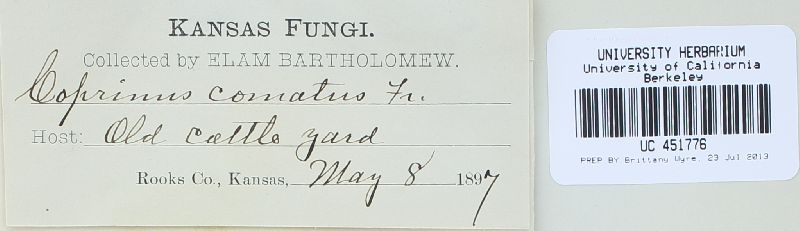 KANSAS FUNGI.
Collected by ELAM BARTHOLOMEW.
Coprinus comatus Fr.
Host: Old cattle yard
Rooks Co., Kansas, May 8 1897
UNIVERSITY HERBARIUM
University of California
Berkeley
UC 451776
PREP BY Brittany Wyre, 23 Jul 2013